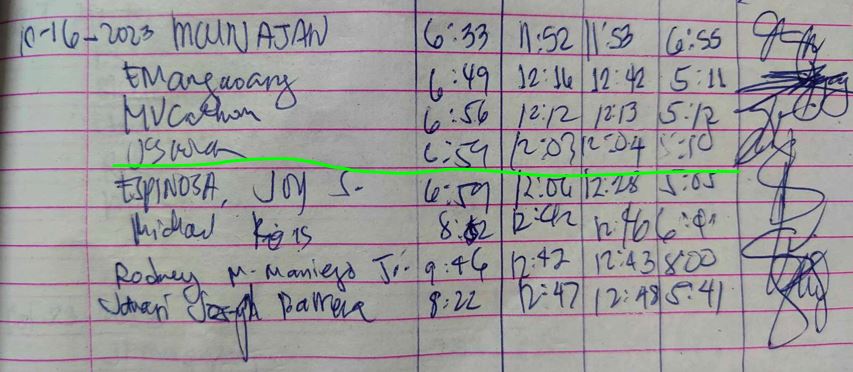 10-16-2023 MCUNAJAN 6:33 11:52 11:53 6:55
EMangubang 6:49 12:16 12:42 5:11
MVCathom 6:56 12:12 12:13 5:12
6:59 12:03 12:04 5:10
ESPINOSA, JOY S. 6:59 12:06 12:28 5:05
Michael 8:52 12:42 12:46 6:41
Rodney M. Maniego Jr. 9:46 12:42 12:43 8:00
Barrera 8:22 12:47 12:48 5:41